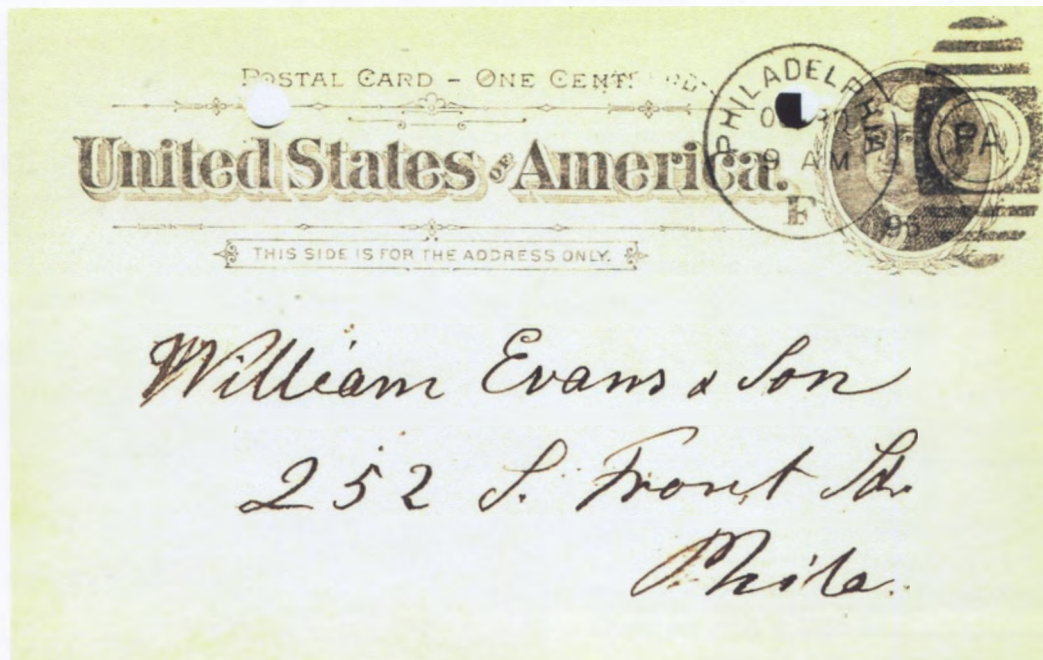 POSTAL CARD - ONE CENT.
United States of America.
THIS SIDE IS FOR THE ADDRESS ONLY.
PHILADELPHIA
9 AM
PA
F
William Evans & Son
252 S. Front St.
Phila.